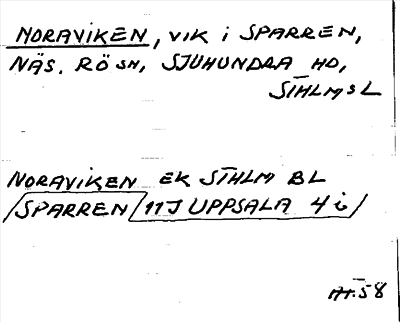 NORAVIKEN, VIK i SPARREN,
NÄS. RÖ SN, SJUHUNDRA HD,
STHLMS L
NORAVIKEN EK STHLM BL
SPARREN 11J UPPSALA 4 i
58